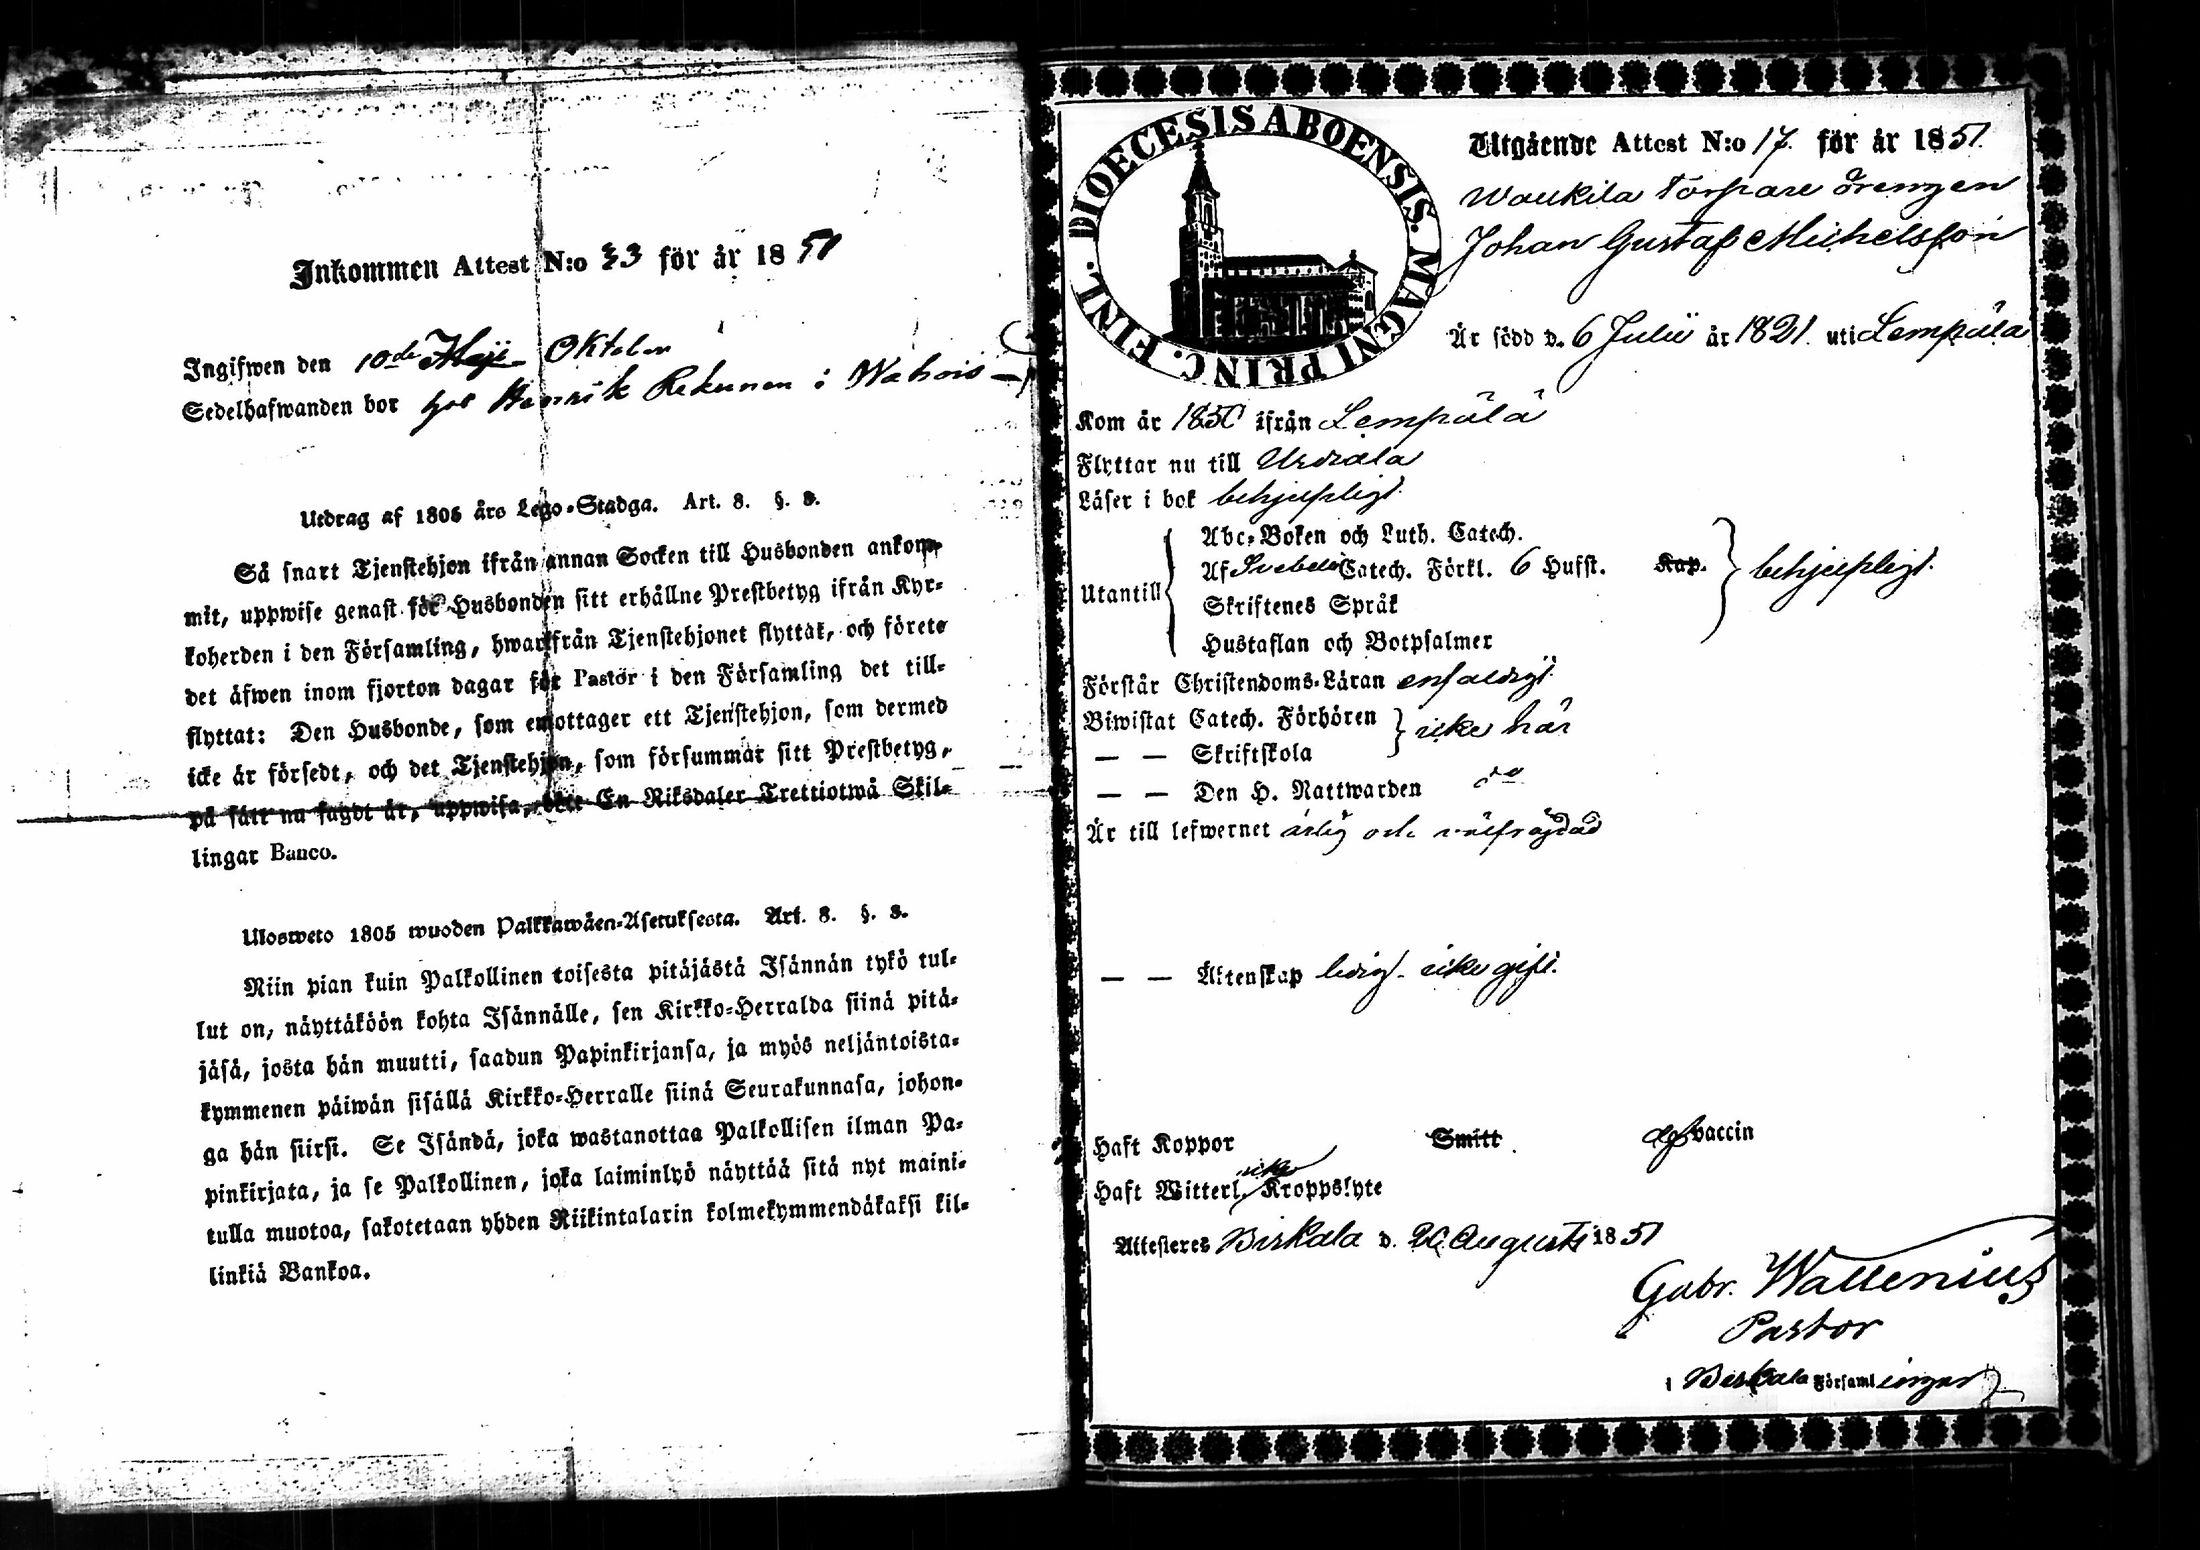 Inkommen Attest N:o 33 för år 1851
Ingifwen den 10de Maji Oktober
Sedelhafwanden bor hos Henrik Rekunen i Wahois
Utdrag af 1805 års Lego-Stadga. Art. 8. §. 3.
Så snart Tjenstehjon ifrån annan Socken till Husbonden ankom-
mit, uppwise genast för Husbonden sitt erhållne Prestbetyg ifrån Kyr-
koherden i den Församling, hwarifrån Tjenstehjonet flyttat, och förete
det äfwen inom fjorton dagar för Pastor i den Församling det till-
flyttat: Den Husbonde, som emottager ett Tjenstehjon, som dermed
icke är försedt, och det Tjenstehjon, som försummar sitt Prestbetyg,
på sätt nu sagdt är, uppwisa, böte En Riksdaler Trettiotwå Skil-
lingar Banco.
Ulosweto 1805 wuoden Palkkawäen-Asetuksesta. Art. 8. §. 3.
Niin pian kuin Palkollinen toisesta pitäjästä Isännän tykö tul-
lut on, näyttäköön kohta Isännälle, sen Kirkko-Herralda siinä pitä-
jäsä, josta hän muutti, saadun Papinkirjansa, ja myös neljäntoista-
kymmenen päiwän sisällä Kirkko-Herralle siinä Seurakunnasa, johon-
ga hän siirsi. Se Isändä, joka wastanottaa Palkollisen ilman Pa-
pinkirjata, ja se Palkollinen, joka laiminlyö näyttää sitä nyt maini-
tulla muotoa, sakotetaan yhden Riikintalarin kolmekymmendäkaksi kil-
linkiä Bankoa.
DIOECESIS ABOENSIS. MAGNI PRINC. FINL.
Utgående Attest N:o 17 för år 1851.
Waukila Torpare drengen
Johan Gustaf Michelsson
Är född d. 6 Julii år 1821. uti Lempäla
Kom år 1850 ifrån Lempälä
Flyttar nu till Urdiala
Läser i bok behjelpligt.
Utantill
Abc-Boken och Luth. Catech.
Af Svebelii Catech. Förkl. 6 Hufst. Kap. behjelpligt.
Skriftenes Språk
Hustaflan och Botpsalmer
Förstår Christendoms-Läran enfaldigt.
Biwistat Catech. Förhören icke här
— — Skriftskola
— — Den H. Nattwarden do
Är till lefwernet ärlig och välfrägdad
— — Äktenskap ledig - icke gift.
Haft Koppor Smitt af vaccin
Haft Witterl. icke Kroppslyte
Attesteres Birkala d. 20 Augusti 1851
Gabr. Wallenius
Pastor
i Birkala Församlingar